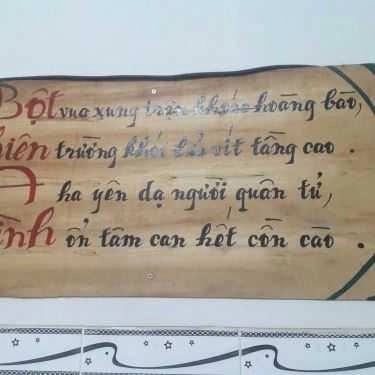 Bột vua xung trận khoác hoàng bào,
trường khói tút tầng cao.
A ha yên dạ người quân tử,
ổn tâm can hết cồn cào.